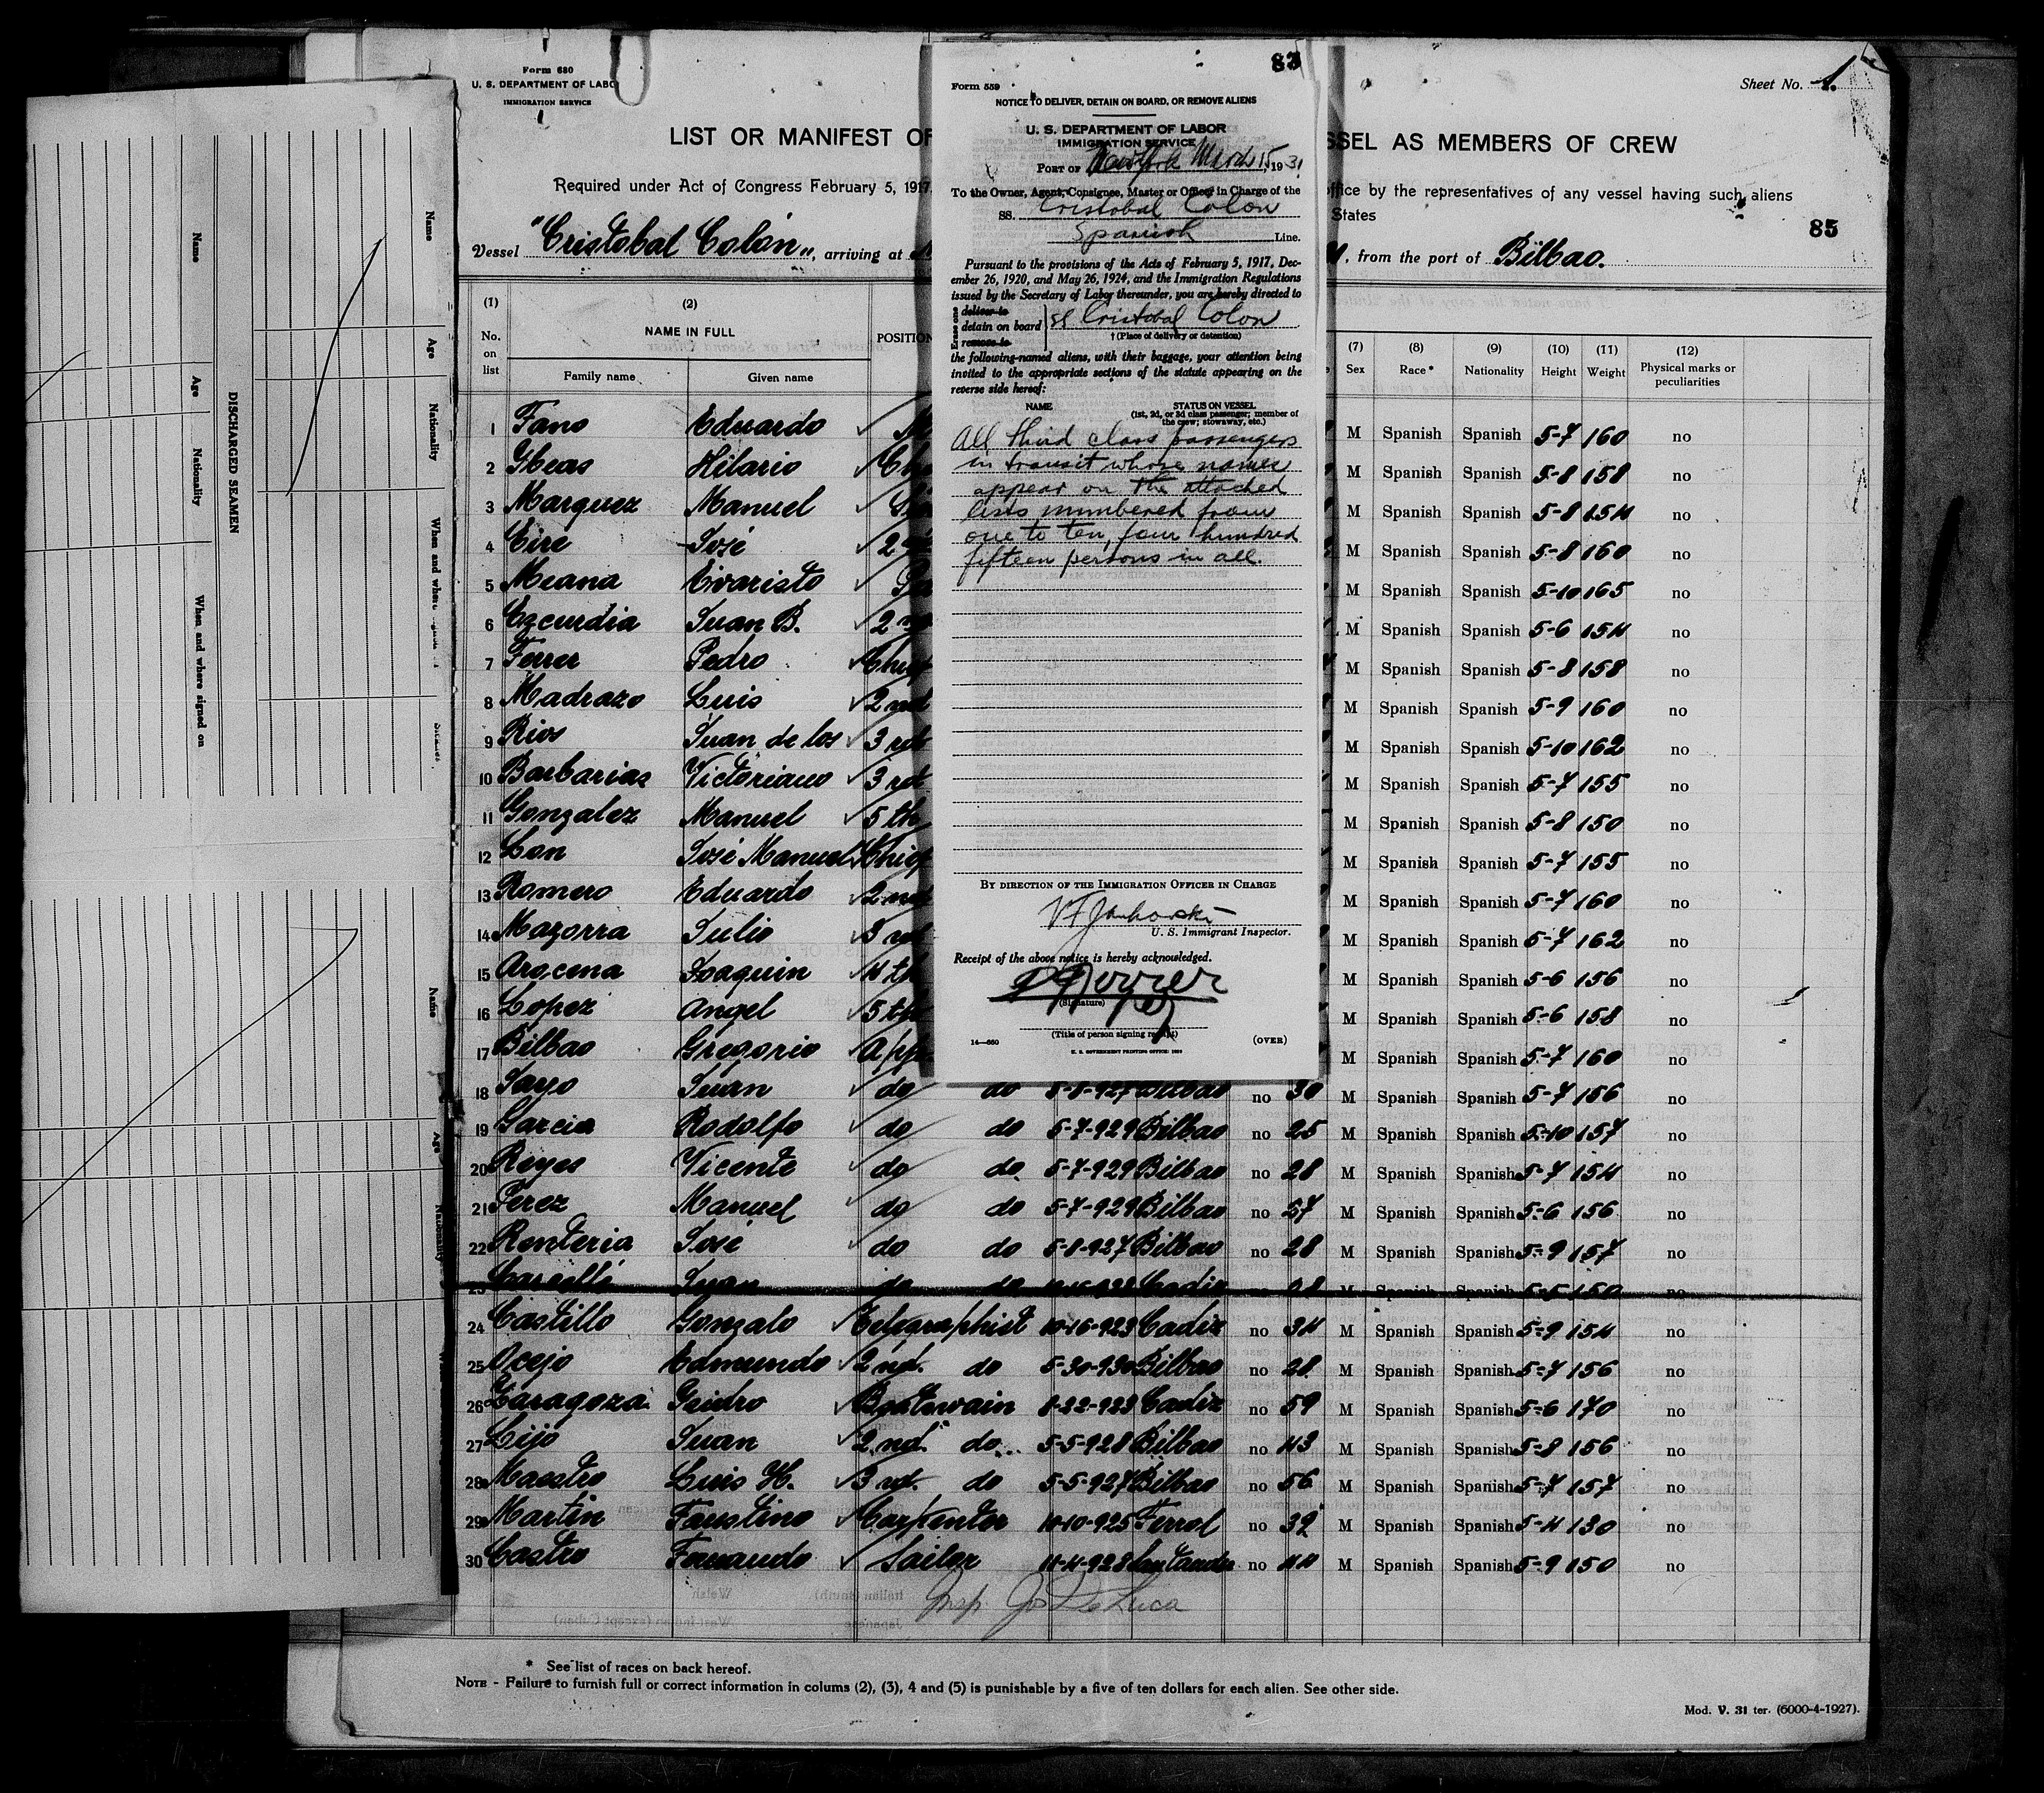 Form 680
U. S. DEPARTMENT OF LABO
IMMIGRATION SERVICE
Sheet No. 1.
LIST OR MANIFEST OF
SSEL AS MEMBERS OF CREW
Required under Act of Congress February 5, 1917
ffice by the representatives of any vessel having such aliens
States
85
Vessel "Cristobal Colón", arriving at
, from the port of Bilbao.
83
Form 559
NOTICE TO DELIVER, DETAIN ON BOARD, OR REMOVE ALIENS
U. S. DEPARTMENT OF LABOR
IMMIGRATION SERVICE
PORT OF New York March 15, 1931
To the Owner, Agent, Consignee, Master or Officer in Charge of the
SS. Cristobal Colon
Spanish Line.
Pursuant to the provisions of the Acts of February 5, 1917, Dec-
ember 26, 1920, and May 26, 1924, and the Immigration Regulations
issued by the Secretary of Labor thereunder, you are hereby directed to
Erase one
deliver to
detain on board
remove to
SS Cristobal Colon
† (Place of delivery or detention)
the following-named aliens, with their baggage, your attention being
invited to the appropriate sections of the statute appearing on the
reverse side hereof:
NAME STATUS ON VESSEL
(1st, 2d, or 3d class passenger; member of
the crew; stowaway, etc.)
All third class passengers
in transit whose names
appear on the attached
lists numbered from
one to ten, four hundred
fifteen persons in all.
BY DIRECTION OF THE IMMIGRATION OFFICER IN CHARGE
U. S. Immigrant Inspector.
Receipt of the above notice is hereby acknowledged.
(Signature)
(Title of person signing receipt)
14—660
(OVER)
U. S. GOVERNMENT PRINTING OFFICE
(1) (2) (7) (8) (9) (10) (11) (12)
No. on list NAME IN FULL POSITION Sex Race* Nationality Height Weight Physical marks or peculiarities
Family name Given name
1 Fano Eduardo M Spanish Spanish 5-7 160 no
2 Gbeas Hilario M Spanish Spanish 5-8 158 no
3 Marquez Manuel M Spanish Spanish 5-8 154 no
4 Eire José 2 M Spanish Spanish 5-8 160 no
5 Meana Evaristo M Spanish Spanish 5-10 165 no
6 Ezcurdia Juan B. 2 nd M Spanish Spanish 5-6 154 no
7 Ferrer Pedro Chief M Spanish Spanish 5-8 158 no
8 Madrazo Luis 2 nd M Spanish Spanish 5-9 160 no
9 Rios Juan de los 3 rd M Spanish Spanish 5-10 162 no
10 Barbarias Victoriano 3 rd M Spanish Spanish 5-7 155 no
11 Gonzalez Manuel 5 th M Spanish Spanish 5-8 150 no
12 Lon José Manuel Chief M Spanish Spanish 5-7 155 no
13 Romero Eduardo 2 nd M Spanish Spanish 5-7 160 no
14 Mazorra Julio 3 rd M Spanish Spanish 5-7 162 no
15 Arocena Joaquin 4 th M Spanish Spanish 5-6 156 no
16 Lopez Angel 5 th M Spanish Spanish 5-6 158 no
17 Bilbao Gregorio App M Spanish Spanish 5-7 160 no
18 Sayo Juan do do 5-8-927 Bilbao no 30 M Spanish Spanish 5-7 156 no
19 Garcia Rodolfo do do 5-7-929 Bilbao no 25 M Spanish Spanish 5-10 157 no
20 Reyes Vicente do do 5-7-929 Bilbao no 28 M Spanish Spanish 5-7 154 no
21 Perez Manuel do do 5-7-929 Bilbao no 27 M Spanish Spanish 5-6 156 no
22 Renteria José do do 5-8-927 Bilbao no 28 M Spanish Spanish 5-9 157 no
23 Juan do do Cadiz no M Spanish Spanish 5-5 150 no
24 Castillo Gonzalo Telegraphist 10-16-923 Cadiz no 34 M Spanish Spanish 5-9 154 no
25 Ocejo Edmundo 2 nd. do 5-30-930 Bilbao no 28 M Spanish Spanish 5-7 156 no
26 Zaragoza Isidro Boatswain 8-22-923 Cadiz no 59 M Spanish Spanish 5-6 170 no
27 Lijo Juan 2 nd. do 5-5-928 Bilbao no 43 M Spanish Spanish 5-8 156 no
28 Maestro Luis H. 3 rd. do 5-5-927 Bilbao no 56 M Spanish Spanish 5-7 157 no
29 Martin Faustino Carpenter 10-10-925 Ferrol no 39 M Spanish Spanish 5-4 130 no
30 Castro Fernando Sailor 11-4-923 Santander no 44 M Spanish Spanish 5-9 150 no
Insp. Jos De Luca
* See list of races on back hereof.
NOTE - Failure to furnish full or correct information in colums (2), (3), 4 and (5) is punishable by a five of ten dollars for each alien. See other side.
Mod. V. 31 ter. (6000-4-1927).
DISCHARGED SEAMEN
Name Age Nationality When and where signed on
Name Age Nationality When and where
Name Age Nationality